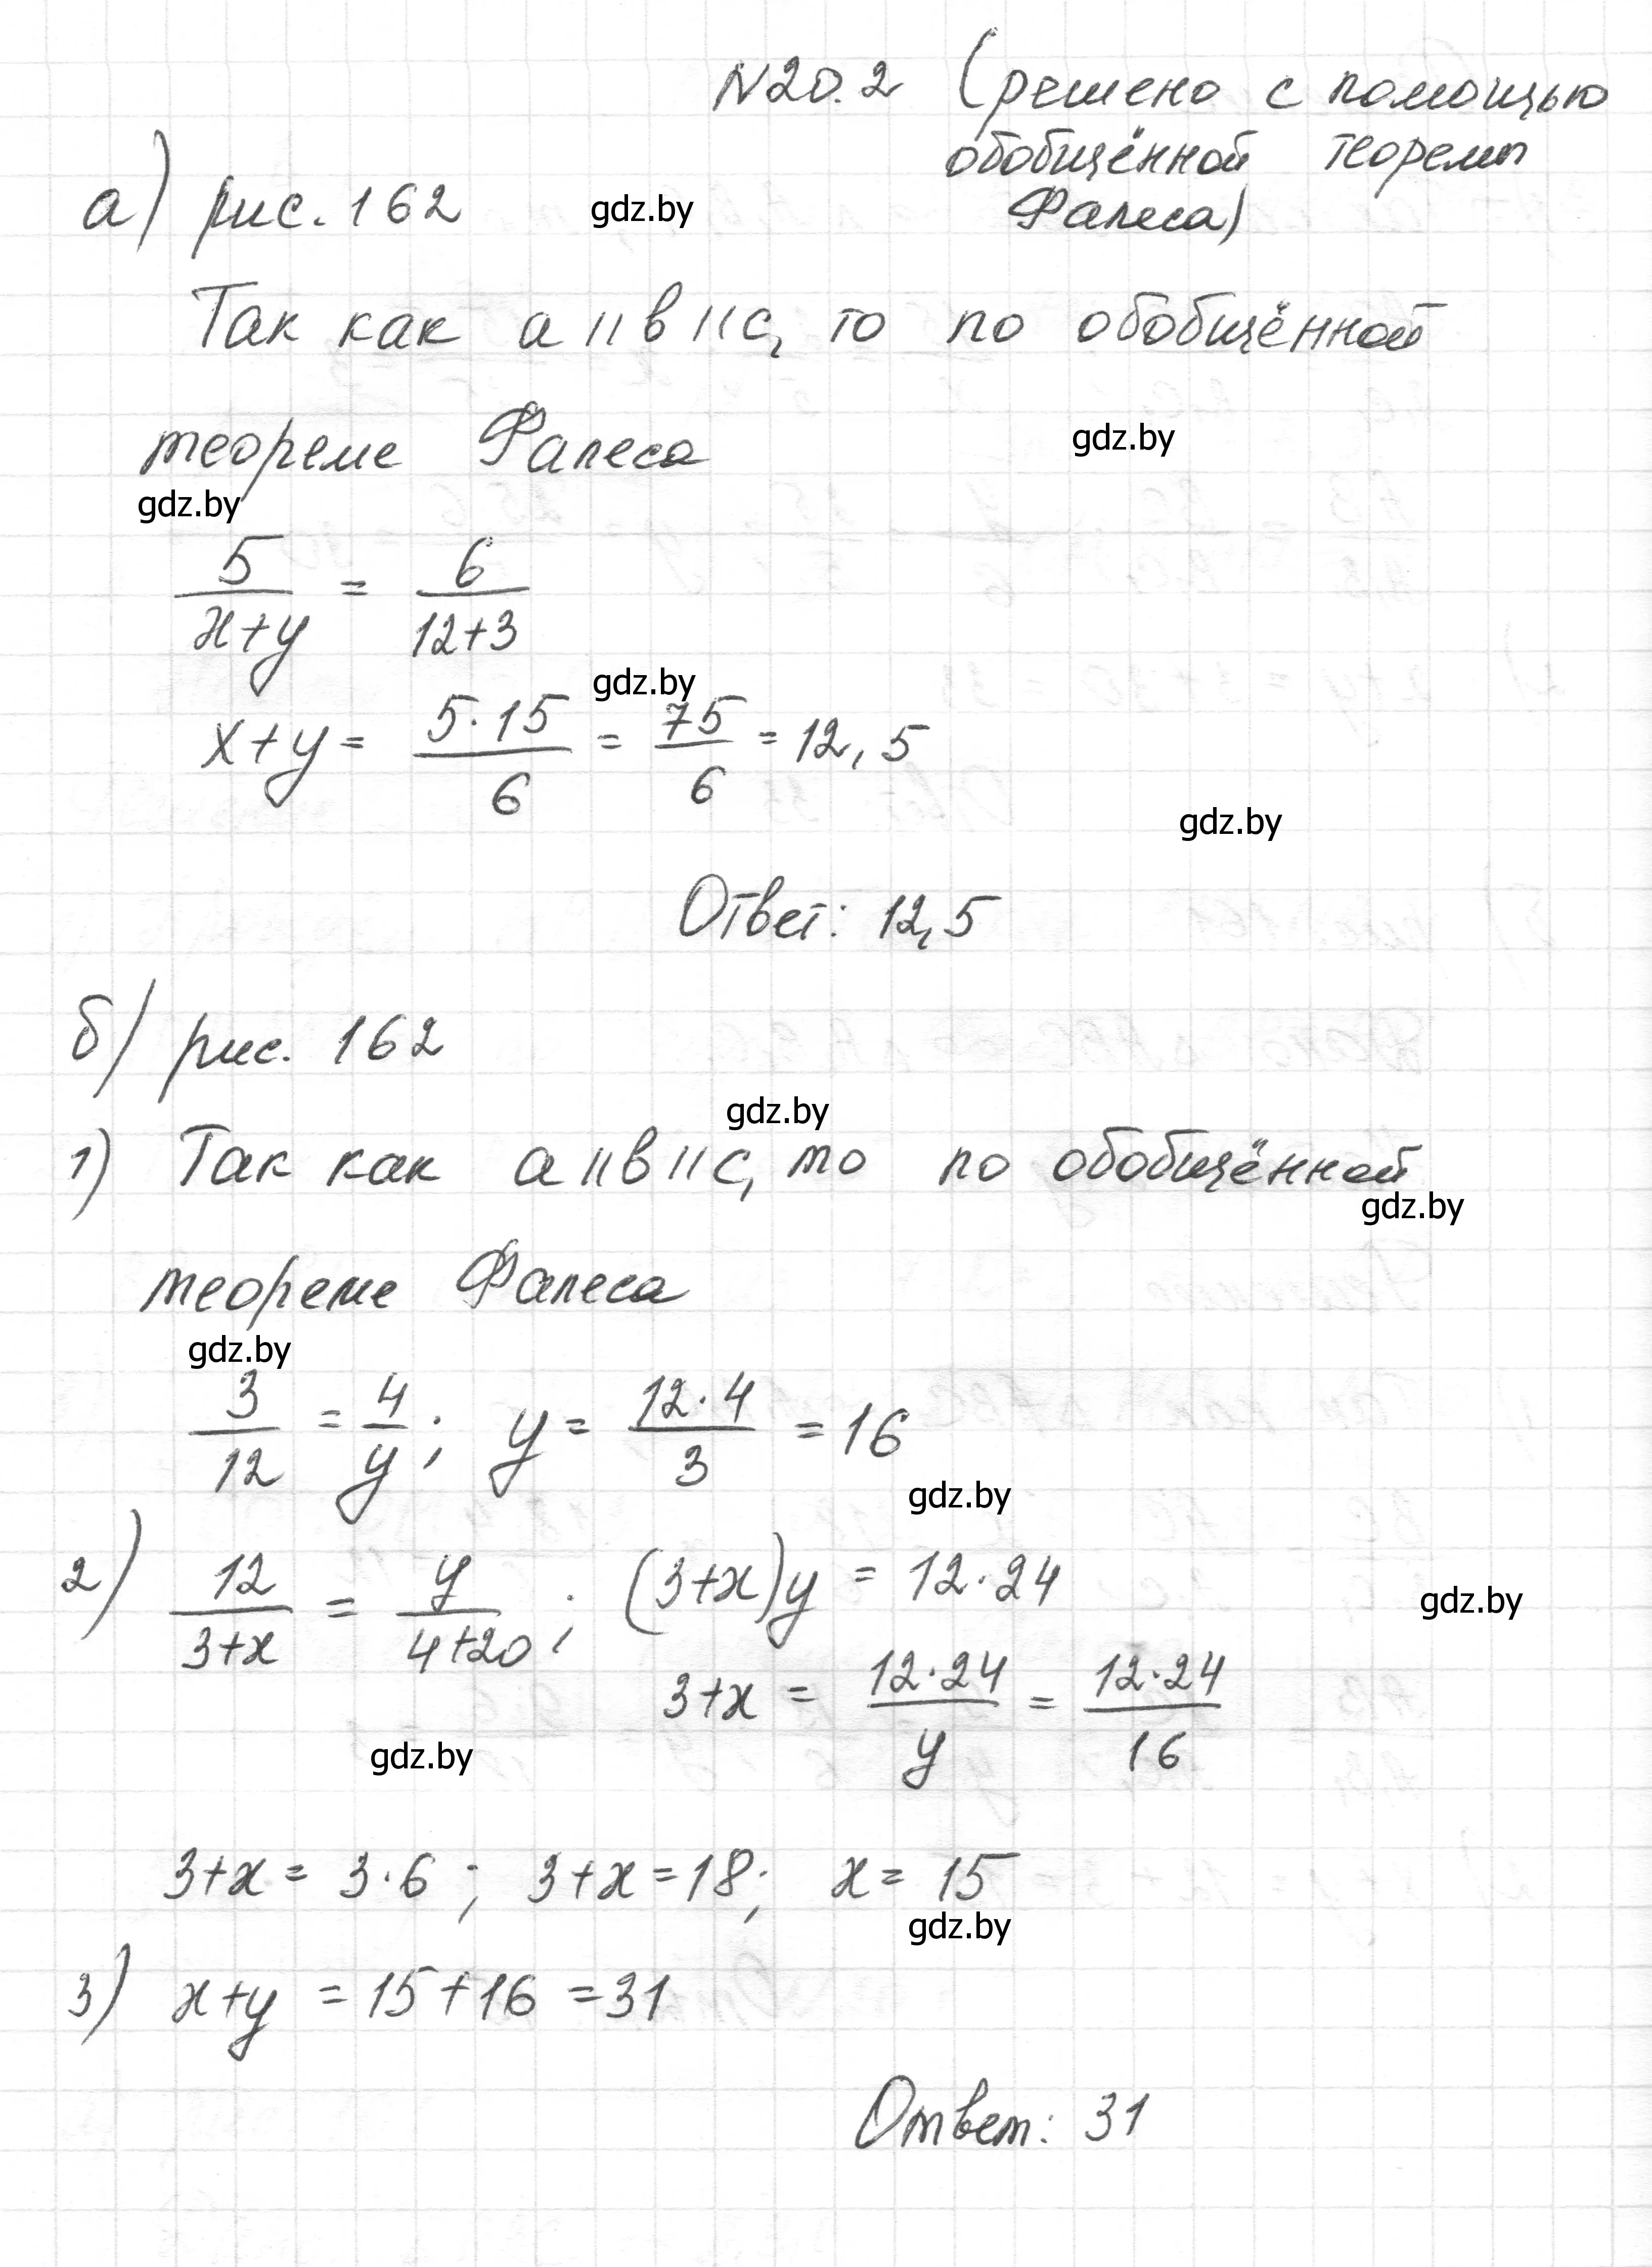 N20.2 (решено с помощью
обобщённой теоремы
Фалеса)
а) рис. 162
gdz.by
Так как a || b || c, то по обобщённой
теореме Фалеса
gdz.by
gdz.by
5/(x+y) = 6/(12+3)
gdz.by
x+y = (5·15)/6 = 75/6 = 12,5
gdz.by
Ответ: 12,5
б) рис. 162
gdz.by
1) Так как a || b || c, то по обобщённой
gdz.by
теореме Фалеса
gdz.by
3/12 = 4/y; y = (12·4)/3 = 16
gdz.by
2) 12/(3+x) = y/(4+20); (3+x)y = 12·24
gdz.by
3+x = (12·24)/y = (12·24)/16
gdz.by
3+x = 3·6; 3+x = 18; x = 15
gdz.by
3) x+y = 15+16 = 31
Ответ: 31